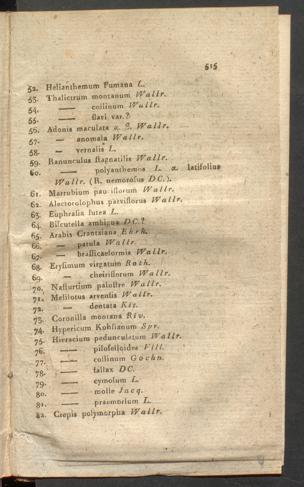 515
52. Helianthemum Fumana L.
53. Thalictrum montanum Wallr.
54. —— collinum Wallr.
55. —— flavi var.?
56. Adonis maculata α. β. Wallr.
57. — anomala Wallr.
58. — vernalis L.
59. Ranunculus stagnatilis Wallr.
60. —— polyanthemos L. α. latifolius
Wallr. (R. nemorosus DC.).
61. Marrubium pauciflorum Wallr.
62. Alectorolophus parviflorus Wallr.
63. Euphrasia lutea L.
64. Biscutella ambigua DC.?
65. Arabis Crantziana Ehrh.
66. — patula Wallr.
67. — brassicaeformis Wallr.
68. Erysimum virgatum Roth.
69. — cheiriflorum Wallr.
70. Nasturtium palustre Wallr.
71. Melilotus arvensis Wallr.
72. — dentata Kit.
73. Coronilla montana Riv.
74. Hypericum Kohlianum Spr.
75. Hieracium pedunculatum Wallr.
76. —— piloselloides Vill.
77. —— collinum Gochn.
78. —— fallax DC.
79. —— cymosum L.
80. —— molle Jacq.
81. —— praemorsum L.
82. Crepis polymorpha Wallr.